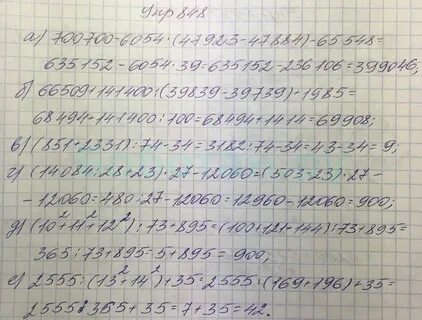 Упр 848
а) 700700-6054·(47923-47884)-65548=
635152-6054·39=635152-236106=399046;
б) 66509+141400:(39839-39739)+1985=
68494+141400:100=68494+1414=69908;
в) (851+2331):74-34=3182:74-34=43-34=9;
г) (14084:28+23)·27-12060=(503-23)·27-
-12060=480·27-12060=12960-12060=900;
д) (10²+11²+12²):73+895=(100+121+144):73+895=
365:73+895=5+895=900;
е) 2555:(13²+14²)+35=2555:(169+196)+35=
2555:365+35=7+35=42.